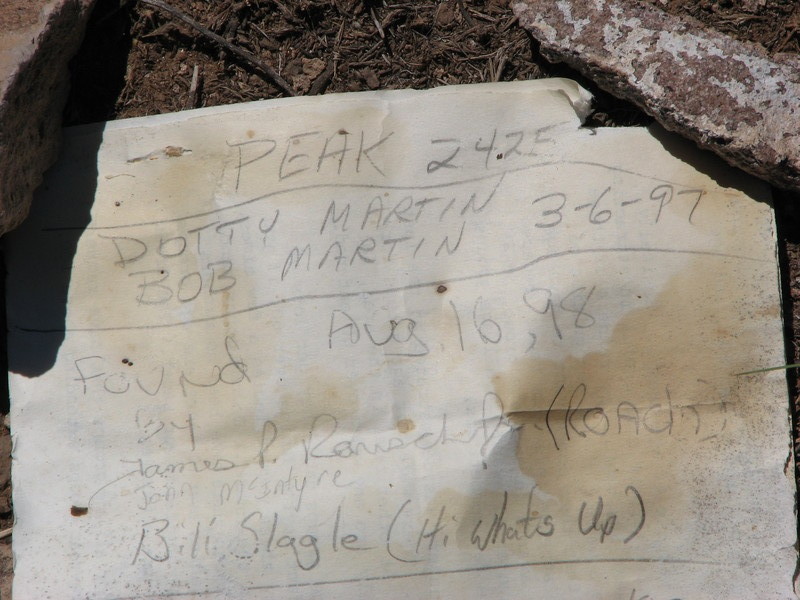 PEAK 242E
DOTTY MARTIN 3-6-97
BOB MARTIN
Aug 16, 98
Found
by
James P. (ROACH)
John McIntyre
Bili Slagle (Hi whats Up)